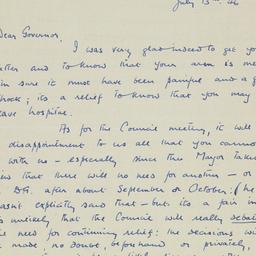 July 13th '46
Dear Governor,
I was very glad indeed to get yo
etter and to know that your arm is me
'm sure it must have been painful and a g
hock; its a relief to know that you may
eave hospital.
As for the Council meeting, it will
disappointment to us all that you canno
with us – especially since the Mayor takes
ew that there will be no need for another – or
D.G. after about September or October: (he
asn't explicitly said that – but its a fair in
s unlikely that the Council will really debat
he need for continuing relief: the decisions wi
made, no doubt, beforehand or privately,